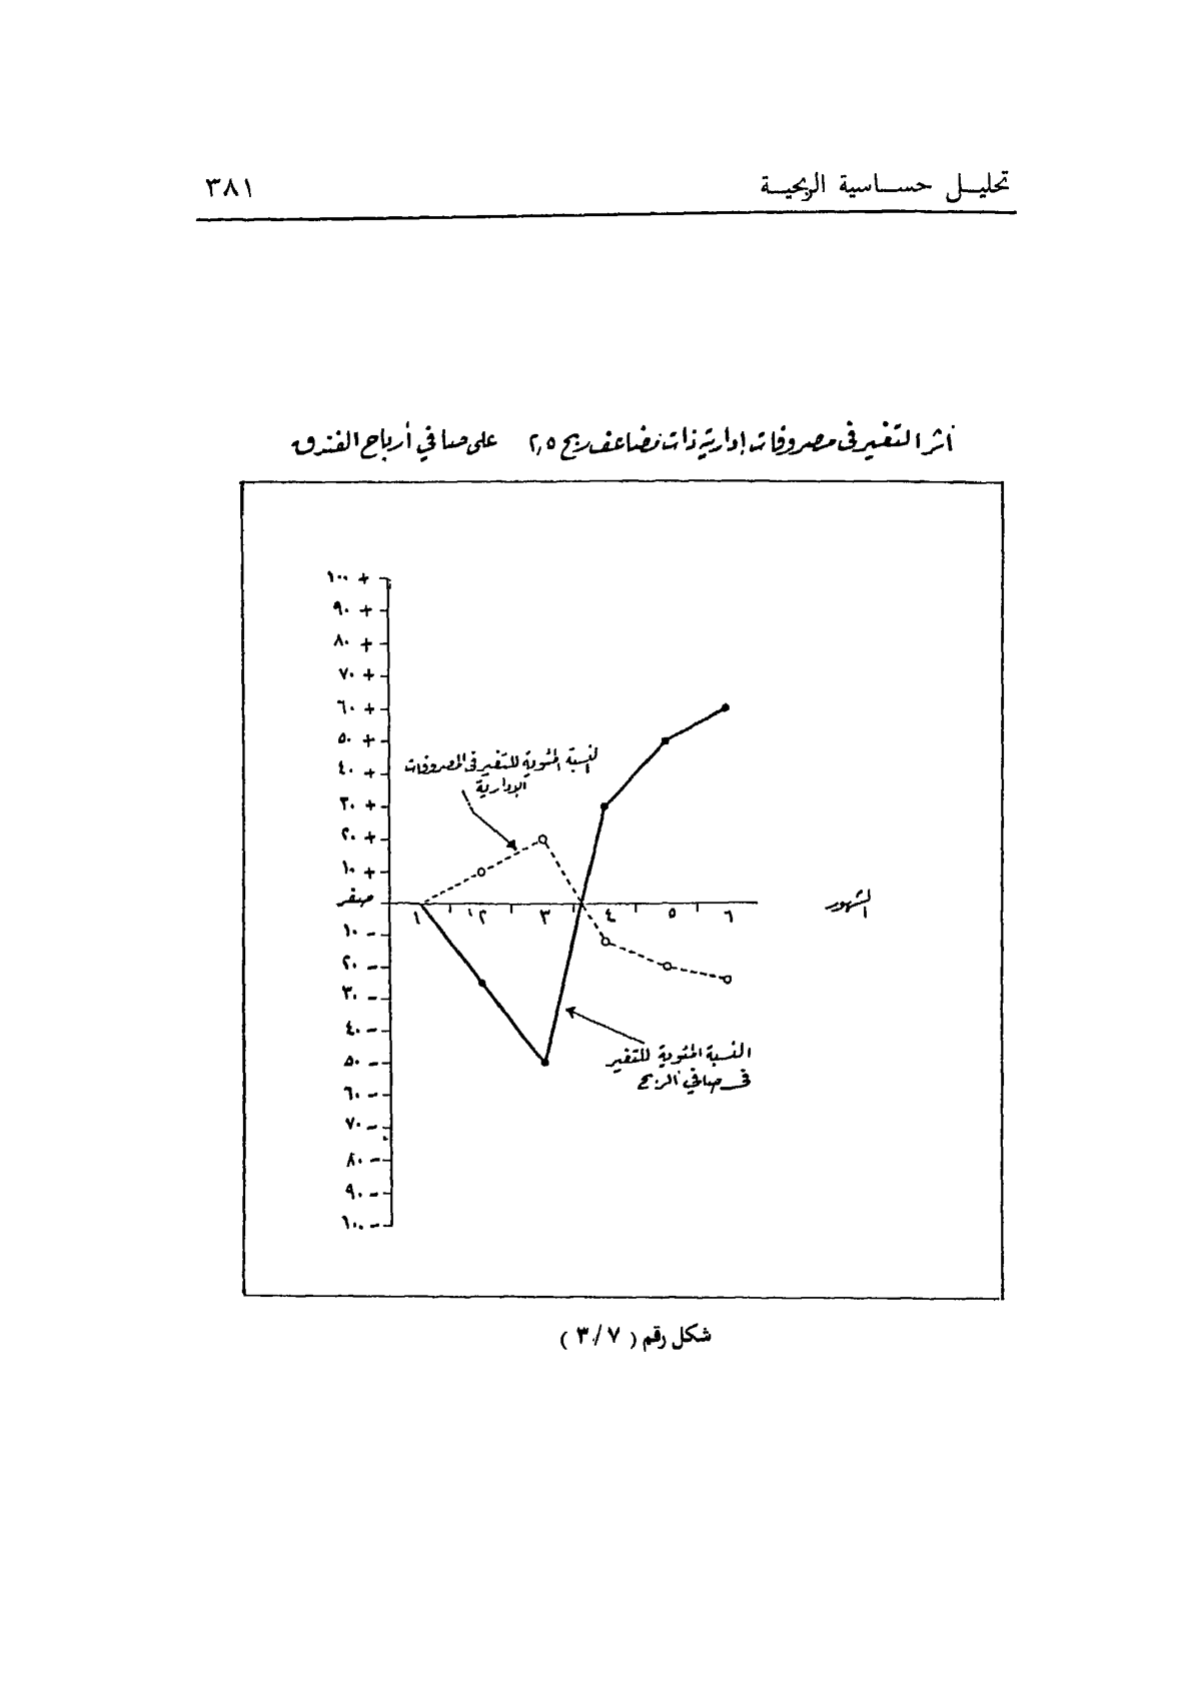 تحليل حساسية الربحية
٣٨١
أثر التغير فى مصروفات إدارية ذات مضاعف ربح ٢,٥ على صافي أرباح الفندق
+ ١٠٠
+ ٩٠
+ ٨٠
+ ٧٠
+ ٦٠
+ ٥٠
+ ٤٠
+ ٣٠
+ ٢٠
+ ١٠
صفر
- ١٠
- ٢٠
- ٣٠
- ٤٠
- ٥٠
- ٦٠
- ٧٠
- ٨٠
- ٩٠
- ١٠٠
النسبة المئوية للتغير فى المصروفات
الإدارية
١ ٢ ٣ ٤ ٥ ٦
الشهور
النسبة المئوية للتغير
فى صافي الربح
شكل رقم ( ٣/٧ )